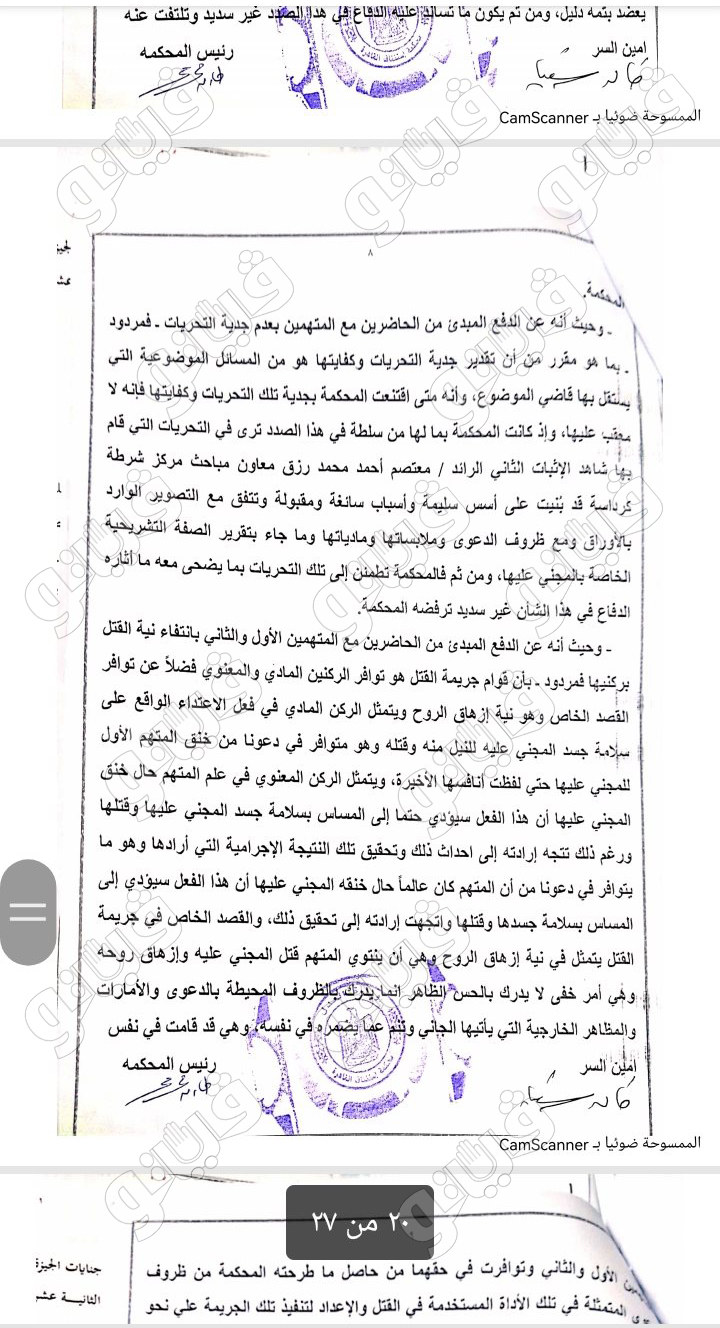 يعضد بثمة دليل، ومن ثم يكون ما تساند عليه الدفاع في هذا الصدد غير سديد وتلتفت عنه
امين السر
رئيس المحكمه
الممسوحة ضوئيا بـ CamScanner
٨
المحكمة.
- وحيث أنه عن الدفع المبدئ من الحاضرين مع المتهمين بعدم جدية التحريات - فمردود
- بما هو مقرر من أن تقدير جدية التحريات وكفايتها هو من المسائل الموضوعية التي
يستقل بها قاضي الموضوع، وأنه متى اقتنعت المحكمة بجدية تلك التحريات وكفايتها فإنه لا
معقب عليها، وإذ كانت المحكمة بما لها من سلطة في هذا الصدد ترى في التحريات التي قام
بها شاهد الإثبات الثاني الرائد / معتصم أحمد محمد رزق معاون مباحث مركز شرطة
كرداسة قد بُنيت على أسس سليمة وأسباب سائغة ومقبولة وتتفق مع التصوير الوارد
بالأوراق ومع ظروف الدعوى وملابساتها ومادياتها وما جاء بتقرير الصفة التشريحية
الخاصة بالمجني عليها، ومن ثم فالمحكمة تطمئن إلى تلك التحريات بما يضحى معه ما أثاره
الدفاع في هذا الشأن غير سديد ترفضه المحكمة.
- وحيث أنه عن الدفع المبدئ من الحاضرين مع المتهمين الأول والثاني بانتفاء نية القتل
بركنيها فمردود - بأن قوام جريمة القتل هو توافر الركنين المادي والمعنوي فضلاً عن توافر
القصد الخاص وهو نية إزهاق الروح ويتمثل الركن المادي في فعل الاعتداء الواقع على
سلامة جسد المجني عليه للنيل منه وقتله وهو متوافر في دعونا من خنق المتهم الأول
للمجني عليها حتي لفظت أنافسها الأخيرة، ويتمثل الركن المعنوي في علم المتهم حال خنق
المجني عليها أن هذا الفعل سيؤدي حتما إلى المساس بسلامة جسد المجني عليها وقتلها
ورغم ذلك تتجه إرادته إلى احداث ذلك وتحقيق تلك النتيجة الإجرامية التي أرادها وهو ما
يتوافر في دعونا من أن المتهم كان عالماً حال خنقه المجني عليها أن هذا الفعل سيؤدي إلى
المساس بسلامة جسدها وقتلها واتجهت إرادته إلى تحقيق ذلك، والقصد الخاص في جريمة
القتل يتمثل في نية إزهاق الروح وهي أن ينتوي المتهم قتل المجني عليه وإزهاق روحه
وهي أمر خفى لا يدرك بالحس الظاهر إنما يدرك بالظروف المحيطة بالدعوى والأمارات
والمظاهر الخارجية التي يأتيها الجاني وتنم عما يضمره في نفسه، وهي قد قامت في نفس
امين السر
رئيس المحكمه
الممسوحة ضوئيا بـ CamScanner
٢٠ من ٢٧
جنايات الجيزة
الثانية عشر
الأول والثاني وتوافرت في حقهما من حاصل ما طرحته المحكمة من ظروف
المتمثلة في تلك الأداة المستخدمة في القتل والإعداد لتنفيذ تلك الجريمة علي نحو